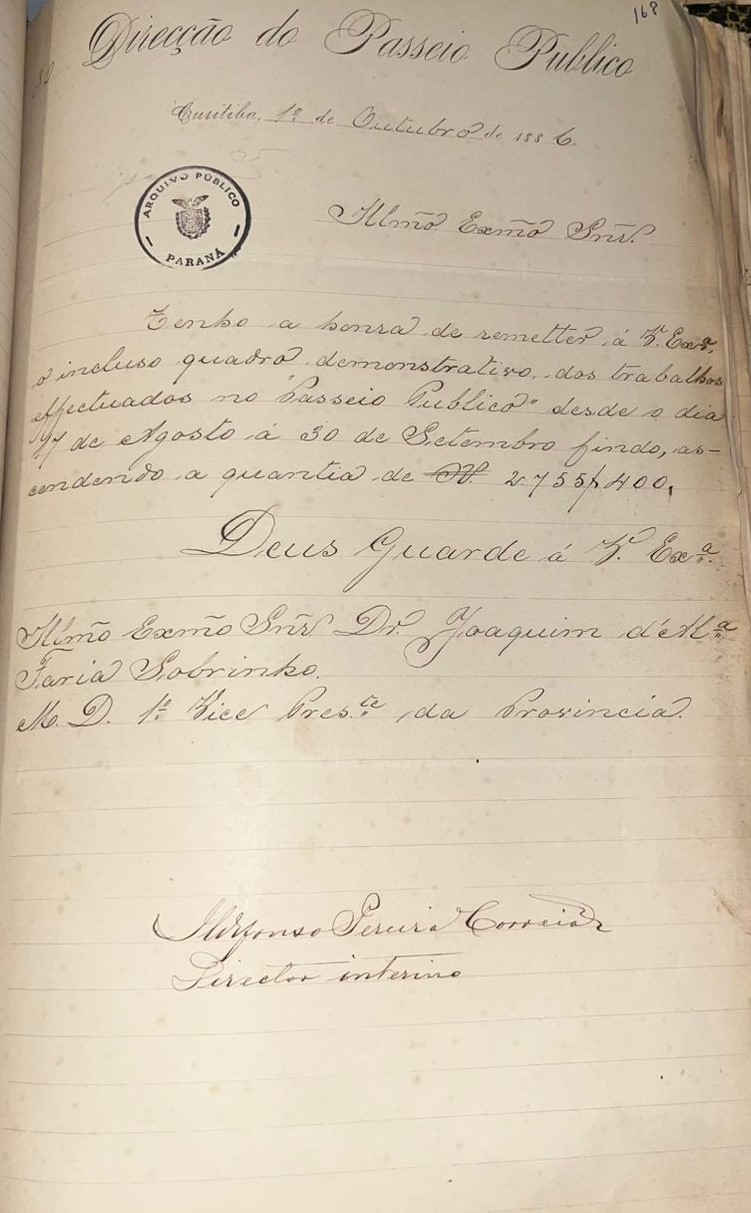 168
Direcção do Passeio Publico
Curitiba, 1º de Outubro de 1886.
ARQUIVO PÚBLICO
PARANÁ
Illmo Exmo Snr.
Tenho a honra de remetter á V. Exª,
o incluso quadro demonstrativo, dos trabalhos
effectuados no "Passeio Publico" desde o dia
17 de Agosto á 30 de Setembro findo, as-
cendendo a quantia de 2.755$400,
Deus Guarde á V. Exª.
Illmo Exmo Snr Dr. Joaquim d'Alª
Faria Sobrinho.
M. D. 1º Vice Pres.te da Provincia.
Ildefonso Pereira Correia
Director interino